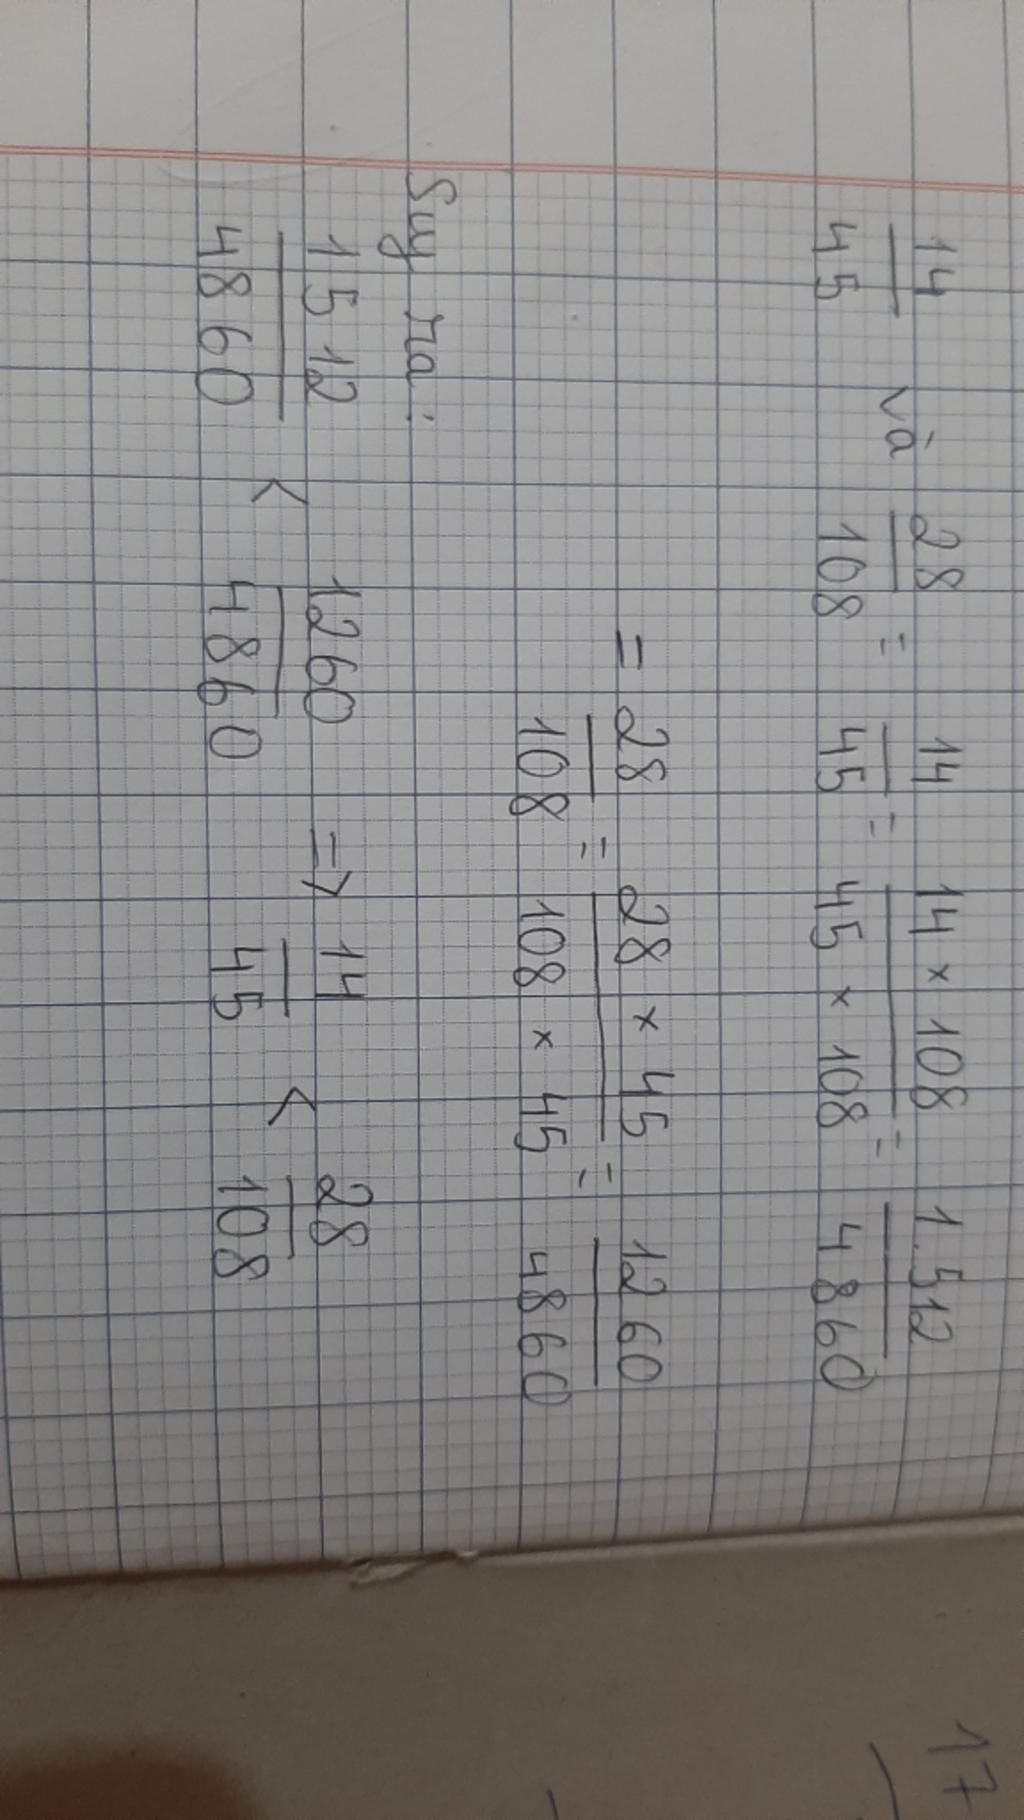 14/45 và 28/108 = 14/45 = 14 × 108/45 × 108 = 1.512/4860
= 28/108 = 28 × 45/108 × 45 = 1260/4860
Suy ra:
1512/4860 < 1260/4860 => 14/45 < 28/108
17